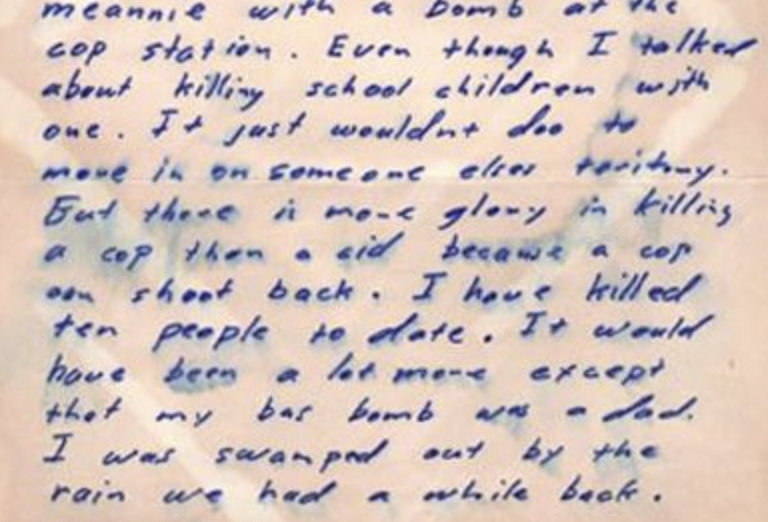 meannie with a bomb at the
cop station. Even though I talked
about killing school children with
one. It just wouldnt doo to
move in on someone elses teritory.
But there is more glory in killing
a cop than a cid because a cop
can shoot back. I have killed
ten people to date. It would
have been a lot more except
that my bus bomb was a dud.
I was swamped out by the
rain we had a while back.